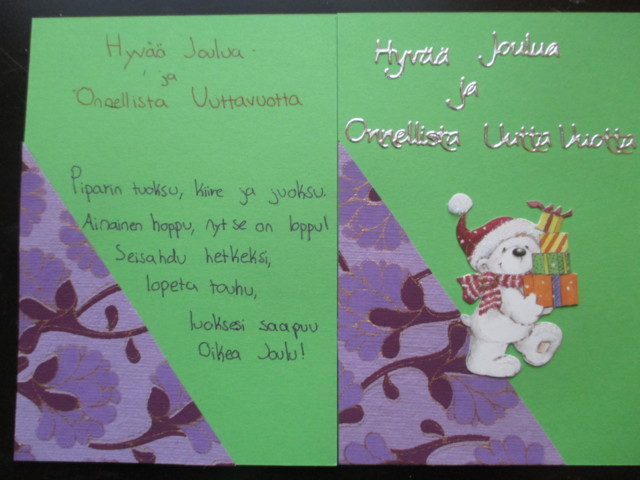 Hyvää Joulua
ja
Onnellista Uuttavuotta
Piparin tuoksu, kiire ja juoksu.
Ainainen hoppu, nyt se on loppu!
Seisahdu hetkeksi,
lopeta touhu,
luoksesi saapuu
Oikea Joulu!
Hyvää Joulua
ja
Onnellista Uutta Vuotta